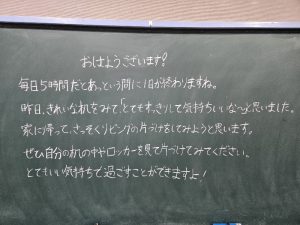 おはようございます!
毎日5時間だとあっという間に1日が終わりますね。
昨日、きれいな机をみて「とてもすっきりして気持ちいいな〜」と思いました。
家に帰って、さっそくリビングの片づけをしてみようと思います。
ぜひ自分の机の中やロッカーを見て片づけてみてください。
とてもいい気持ちで過ごすことができますよ!